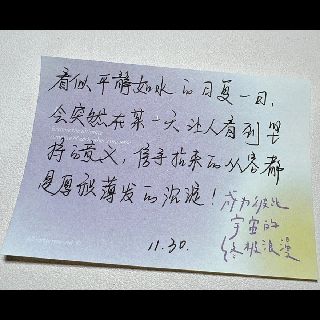 看似平静如水的日复一日，
会突然在某一天让人看到坚
持的意义，信手拈来的从容都
是厚积薄发的沉淀！
成为彼此
宇宙的
终极浪漫
11.30.